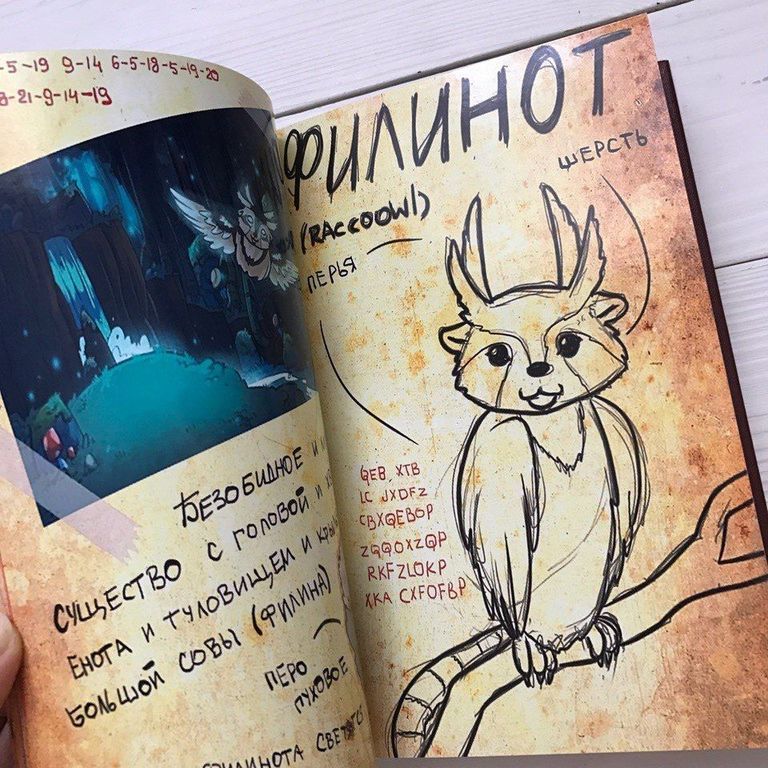 -5-19 9-14 6-5-18-5-19-20
8-21-9-14-19
БЕЗОБИДНОЕ И
СУЩЕСТВО С ГОЛОВОЙ И
ЕНОТА И ТУЛОВИЩЕМ И
БОЛЬШОЙ СОВЫ (ФИЛИНА)
ПЕРО
ПУХОВОЕ
ФИЛИНОТА
ФИЛИНОТ
(RACCOOWL)
ШЕРСТЬ
ПЕРЬЯ
QEB XTB
LC JXDFZ
CBXQEBOP
ZQQOXZQP
RKFZLOKP
XKA CXFOFBP